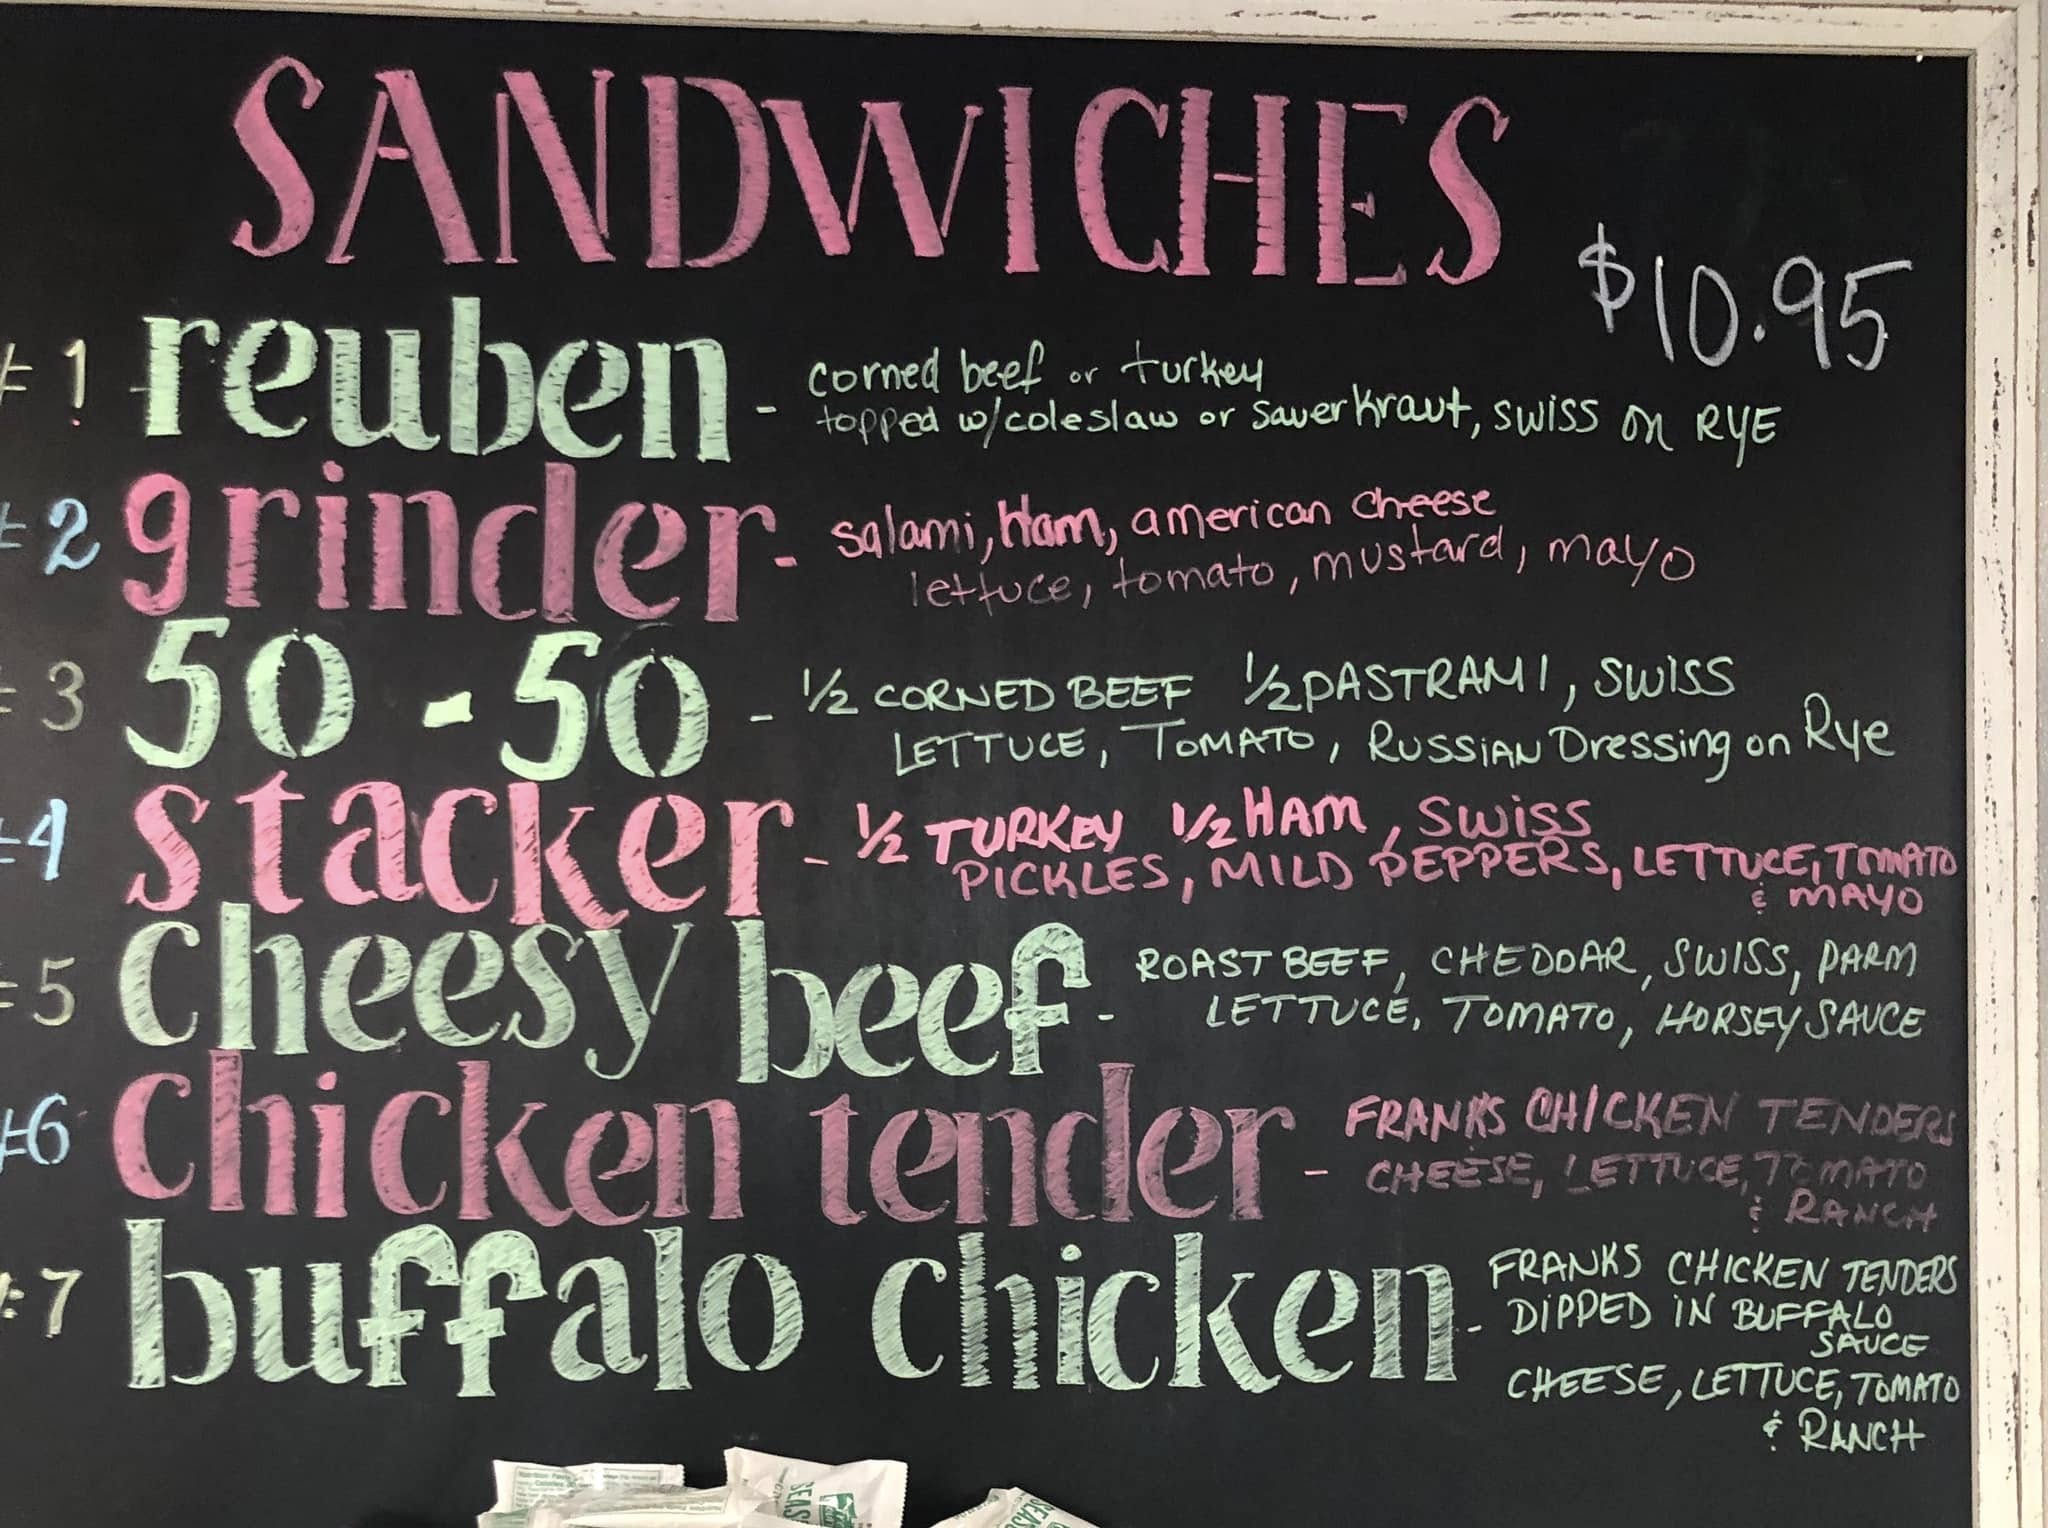 SANDWICHES
$10.95
#1 reuben - corned beef or turkey
topped w/coleslaw or sauerkraut, swiss on RYE
#2 grinder - salami, Ham, american cheese
lettuce, tomato, mustard, mayo
#3 50-50 - 1/2 CORNED BEEF 1/2 PASTRAMI, SWISS
LETTUCE, TOMATO, RUSSIAN Dressing on Rye
#4 stacker - 1/2 TURKEY 1/2 HAM, SWISS
PICKLES, MILD PEPPERS, LETTUCE, TOMATO
& MAYO
#5 cheesy beef - ROAST BEEF, CHEDDAR, SWISS, PARM
LETTUCE, TOMATO, HORSEY SAUCE
#6 chicken tender - FRANKS CHICKEN TENDERS
CHEESE, LETTUCE, TOMATO
& RANCH
#7 buffalo chicken - FRANKS CHICKEN TENDERS
DIPPED IN BUFFALO
SAUCE
CHEESE, LETTUCE, TOMATO
& RANCH